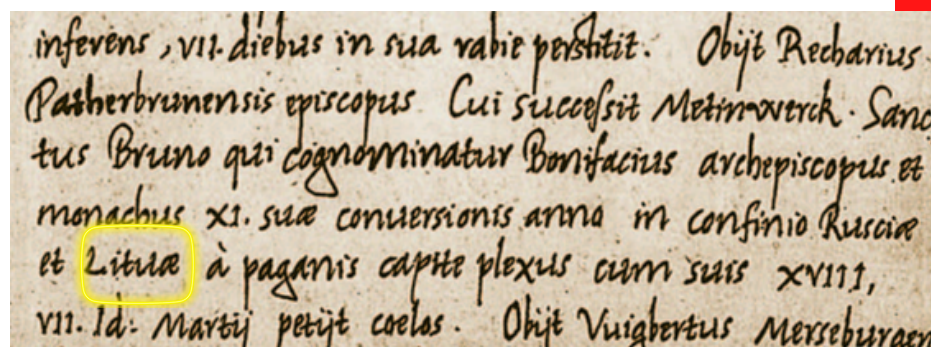 inferens, vii. diebus in sua rabie perstitit. Obijt Recharius
Patherbrunensis episcopus Cui successit Metinwerck. Sanc
tus Bruno qui cognominatur Bonifacius archepiscopus et
monachus XI. suæ conuersionis anno in confinio Rusciæ
et Lituæ à paganis capite plexus cum suis XVIII,
vii. Id: Martij petijt coelos. Obijt Vuigbertus Merseburgen